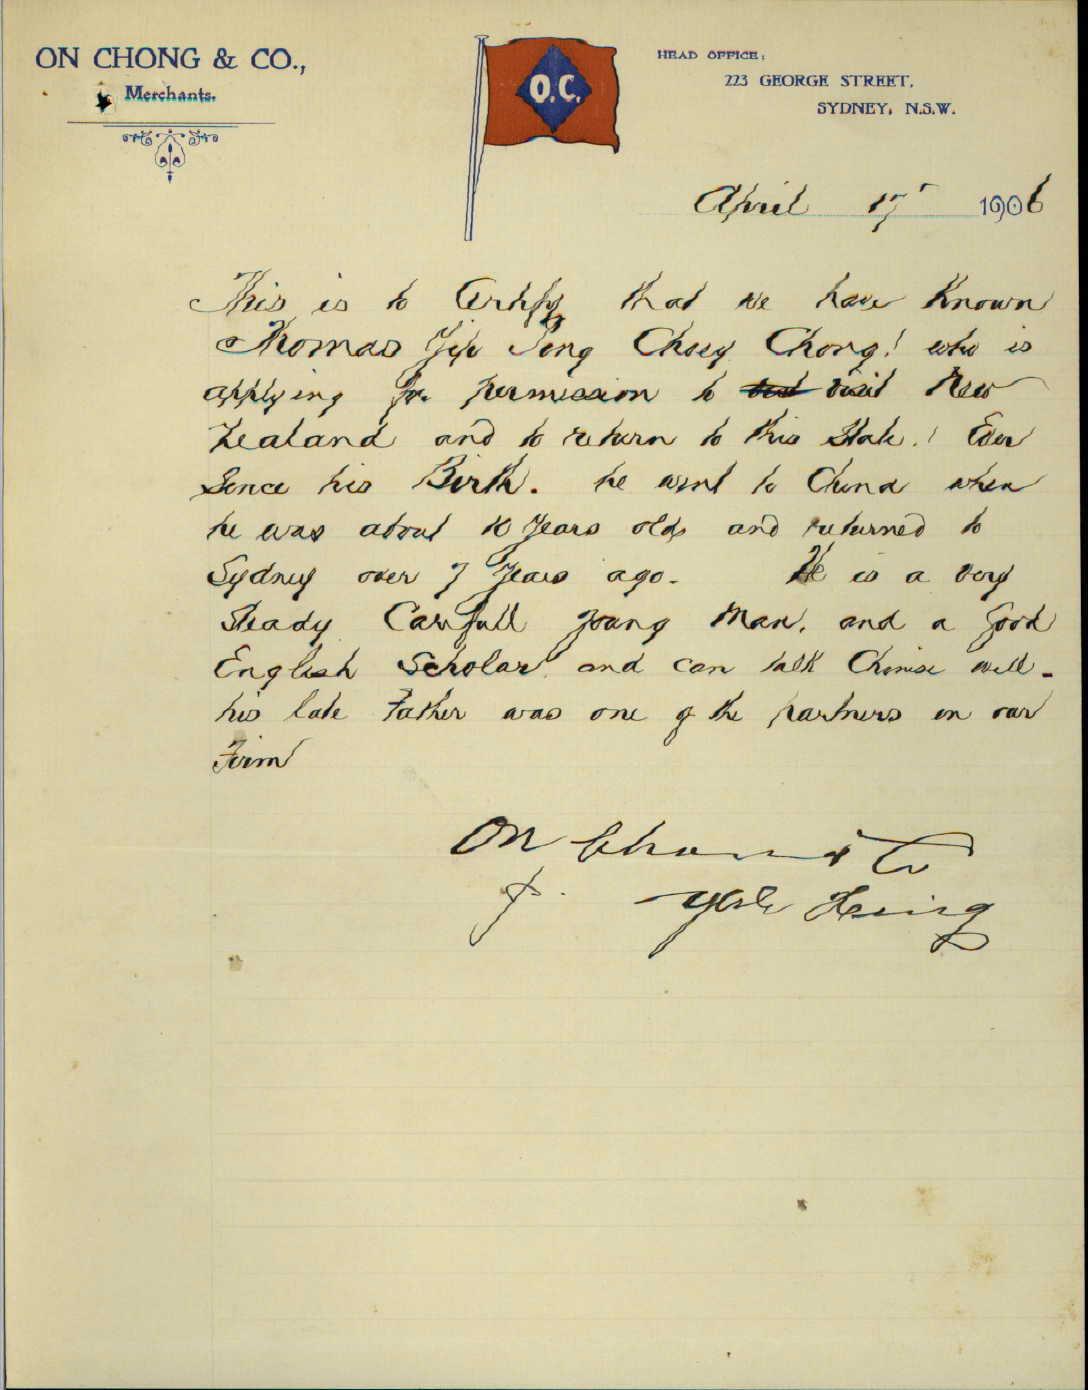 ON CHONG & CO.,
Merchants.
O.C.
HEAD OFFICE:
223 GEORGE STREET,
SYDNEY, N.S.W.
April 17 1906
This is to Certify that we have Known
Thomas Yip Song Choey Chong! who is
applying for permission to visit New
Zealand and to return to this State.! Ever
Sence his Birth. he went to China when
he was about 10 Years old, and returned to
Sydney over 7 Years ago. He is a very
Steady Carefull young Man, and a Good
English Scholar and can talk Chinese well.
his late Father was one of the partners in our
Firm
On Chong & Co
p.